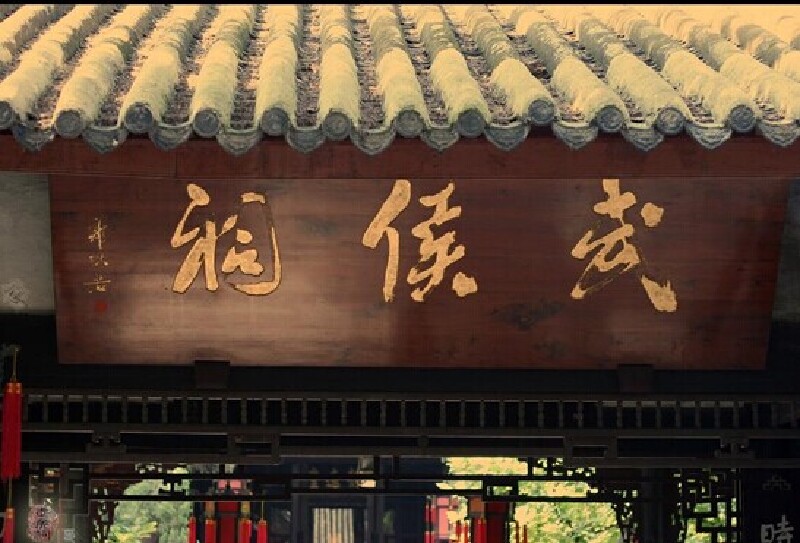 武侯祠
郭沫若
時